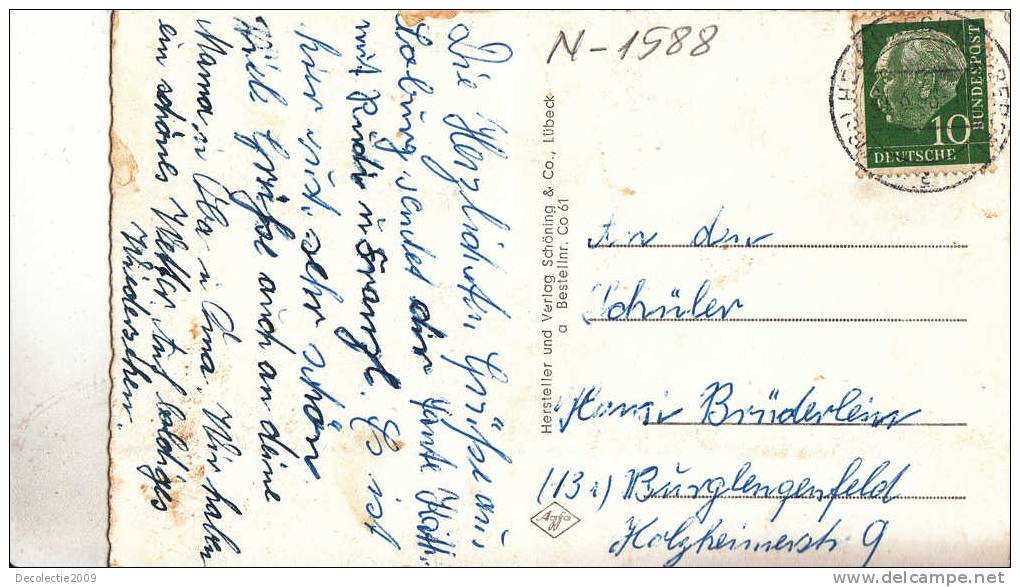 Die Herzlichsten Grüße aus
Coburg sendet dir Tante Käthi
mit Rudi u Franzl. Es ist
hier wirk. sehr schön.
Viele Grüße auch an deine
Mama Oba u Oma. Wir haben
ein schönes Wetter auf baldiges
Wiedersehen.
Hersteller und Verlag Schöning & Co., Lübeck
a Bestellnr. Co 61
Agfa
N-1988
10
BUNDESPOST
DEUTSCHE
An den
Schüler
Hansi Brüderlein
(13a) Burglengenfeld
Holzheimerstr. 9
Decolectie2009
delcampe.net